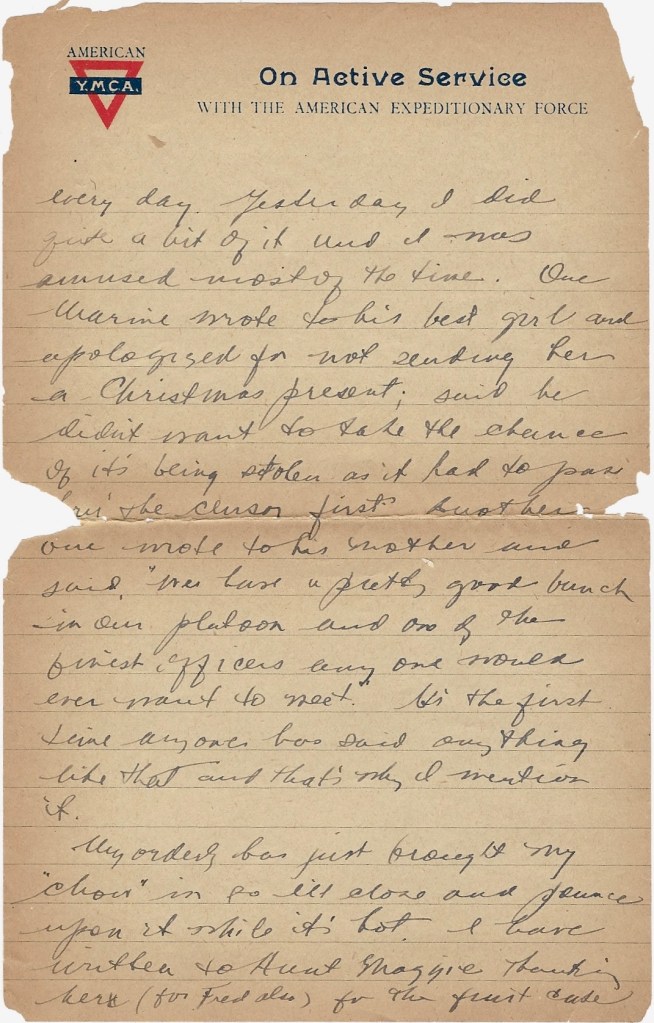 AMERICAN
Y.M.C.A.
On Active Service
WITH THE AMERICAN EXPEDITIONARY FORCE
every day. Yesterday I did
quite a bit of it and I was
amused most of the time. One
Marine wrote to his best girl and
apologized for not sending her
a Christmas present; said he
didn't want to take the chance
of it's being stolen as it had to pass
thru' the censor first. Another
one wrote to his mother and
said, "We have a pretty good bunch
in our platoon and one of the
finest officers any one would
ever want to meet." It's the first
time anyones has said anything
like that and that's why I mention
it.
My orderly has just brought my
"chow" in so I'll close and pounce
upon it while it's hot. I have
written to Aunt Maggie thanking
her (for Fred also) for the fruit cake